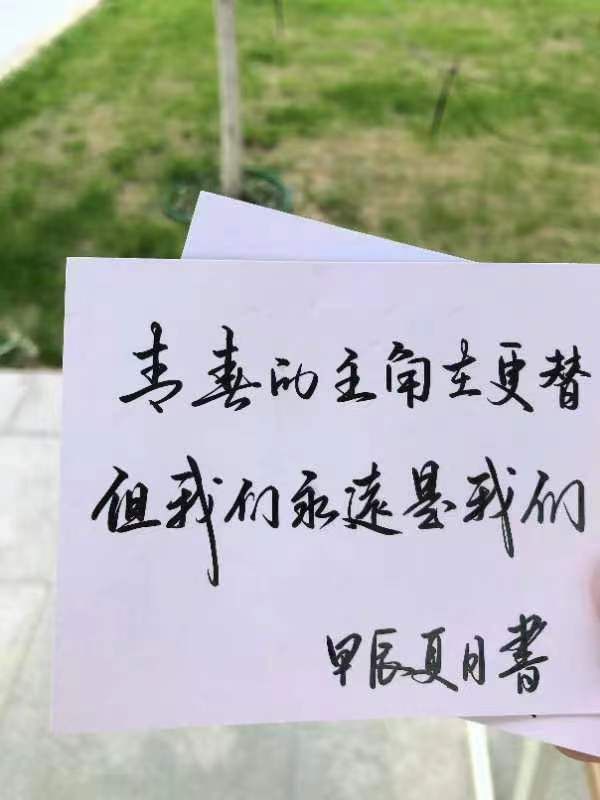 青春的主角在更替
但我们永远是我们
甲辰夏月書